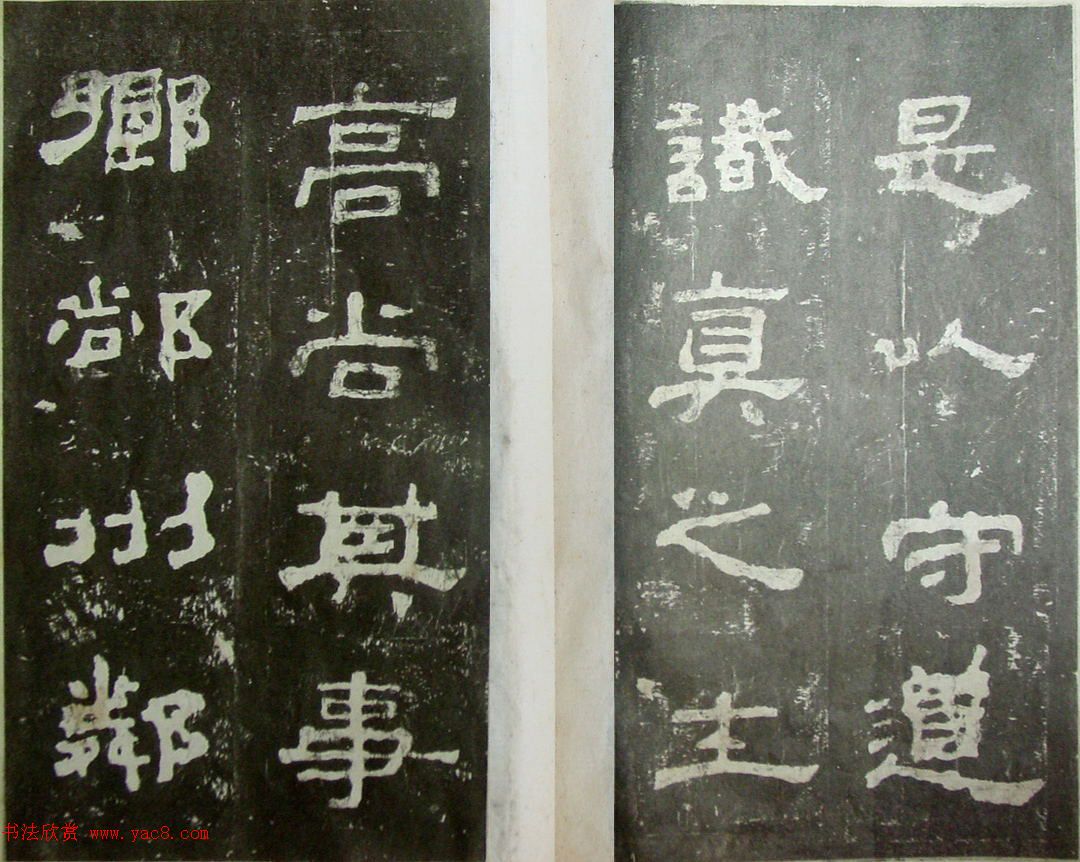 是以守道
識真之士
高尚其事
鄉䣊州鄰
书法欣赏 www.yac8.com